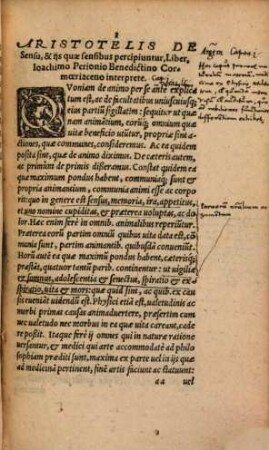 ARISTOTELIS DE
Sensu, & ijs quæ sensibus percipiuntur, Liber,
Ioachimo Perionio Benedictino Cor-
mœriaceno interprete.
QVoniam de animo per se ante explica
tum est, ac de facultatibus uniuscuiusq;
eius partiũ sigillatim: sequitur ut quæ
nam animātium, earũq; omnium quæ
uitæ beneficio utũtur, propriæ sint a-
ctiones, quæ communes, consideremus. Ac ea quidem
posita sint, quæ de animo diximus. De cæteris autem,
ac primum de primis disseramus. Constat quidem ea
quæ maximum pondus habent, communia, sunt et
propria animantium, communia animi esse ac corpo-
ris: quo in genere est sensus, memoria, ira, appetitus,
et uno nomine cupiditas, & præterea uoluptas, ac do-
lor. Hæc enim ferè in omnib. animalibus reperiũtur.
Præterea eorũ partim omniũ quibus uita data est, cō-
munia sunt, partim animantib. quibusdā conueniũt.
Horũ autē ea quæ maximũ pondus habent, cæterisq́;
præstāt, quatuor tenẽt parib. continentur: ut uigilia et
somnus, adolescentia & senectus, spiratio et ex-
spiratio, uita et mors: quæ quid sint, ac quib. ex cau
sis eueniāt uidendũ est. Physici etiā est, ualetudinis ac
morbi primas causas animaduertere, præsertim cum
nec ualetudo nec morbus in ea quæ uita careant, cade
re potest. Itaque ferè ij omnes qui in natura ratione
uersantur, & medici qui arte accommodatè ad philo
sophiam præditi sunt, maxima ex parte uel in ijs quæ ad
medicinā pertinent, finē artis suscipiunt ac statuunt:
aa uel